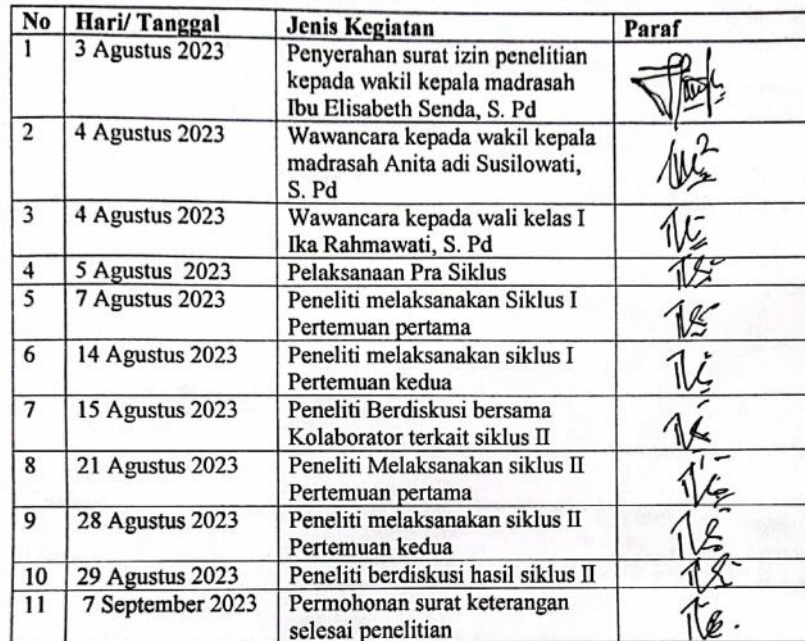 No Hari/ Tanggal Jenis Kegiatan Paraf
1 3 Agustus 2023 Penyerahan surat izin penelitian
kepada wakil kepala madrasah
Ibu Elisabeth Senda, S. Pd
2 4 Agustus 2023 Wawancara kepada wakil kepala
madrasah Anita adi Susilowati,
S. Pd
3 4 Agustus 2023 Wawancara kepada wali kelas I
Ika Rahmawati, S. Pd
4 5 Agustus 2023 Pelaksanaan Pra Siklus
5 7 Agustus 2023 Peneliti melaksanakan Siklus I
Pertemuan pertama
6 14 Agustus 2023 Peneliti melaksanakan siklus I
Pertemuan kedua
7 15 Agustus 2023 Peneliti Berdiskusi bersama
Kolaborator terkait siklus II
8 21 Agustus 2023 Peneliti Melaksanakan siklus II
Pertemuan pertama
9 28 Agustus 2023 Peneliti melaksanakan siklus II
Pertemuan kedua
10 29 Agustus 2023 Peneliti berdiskusi hasil siklus II
11 7 September 2023 Permohonan surat keterangan
selesai penelitian